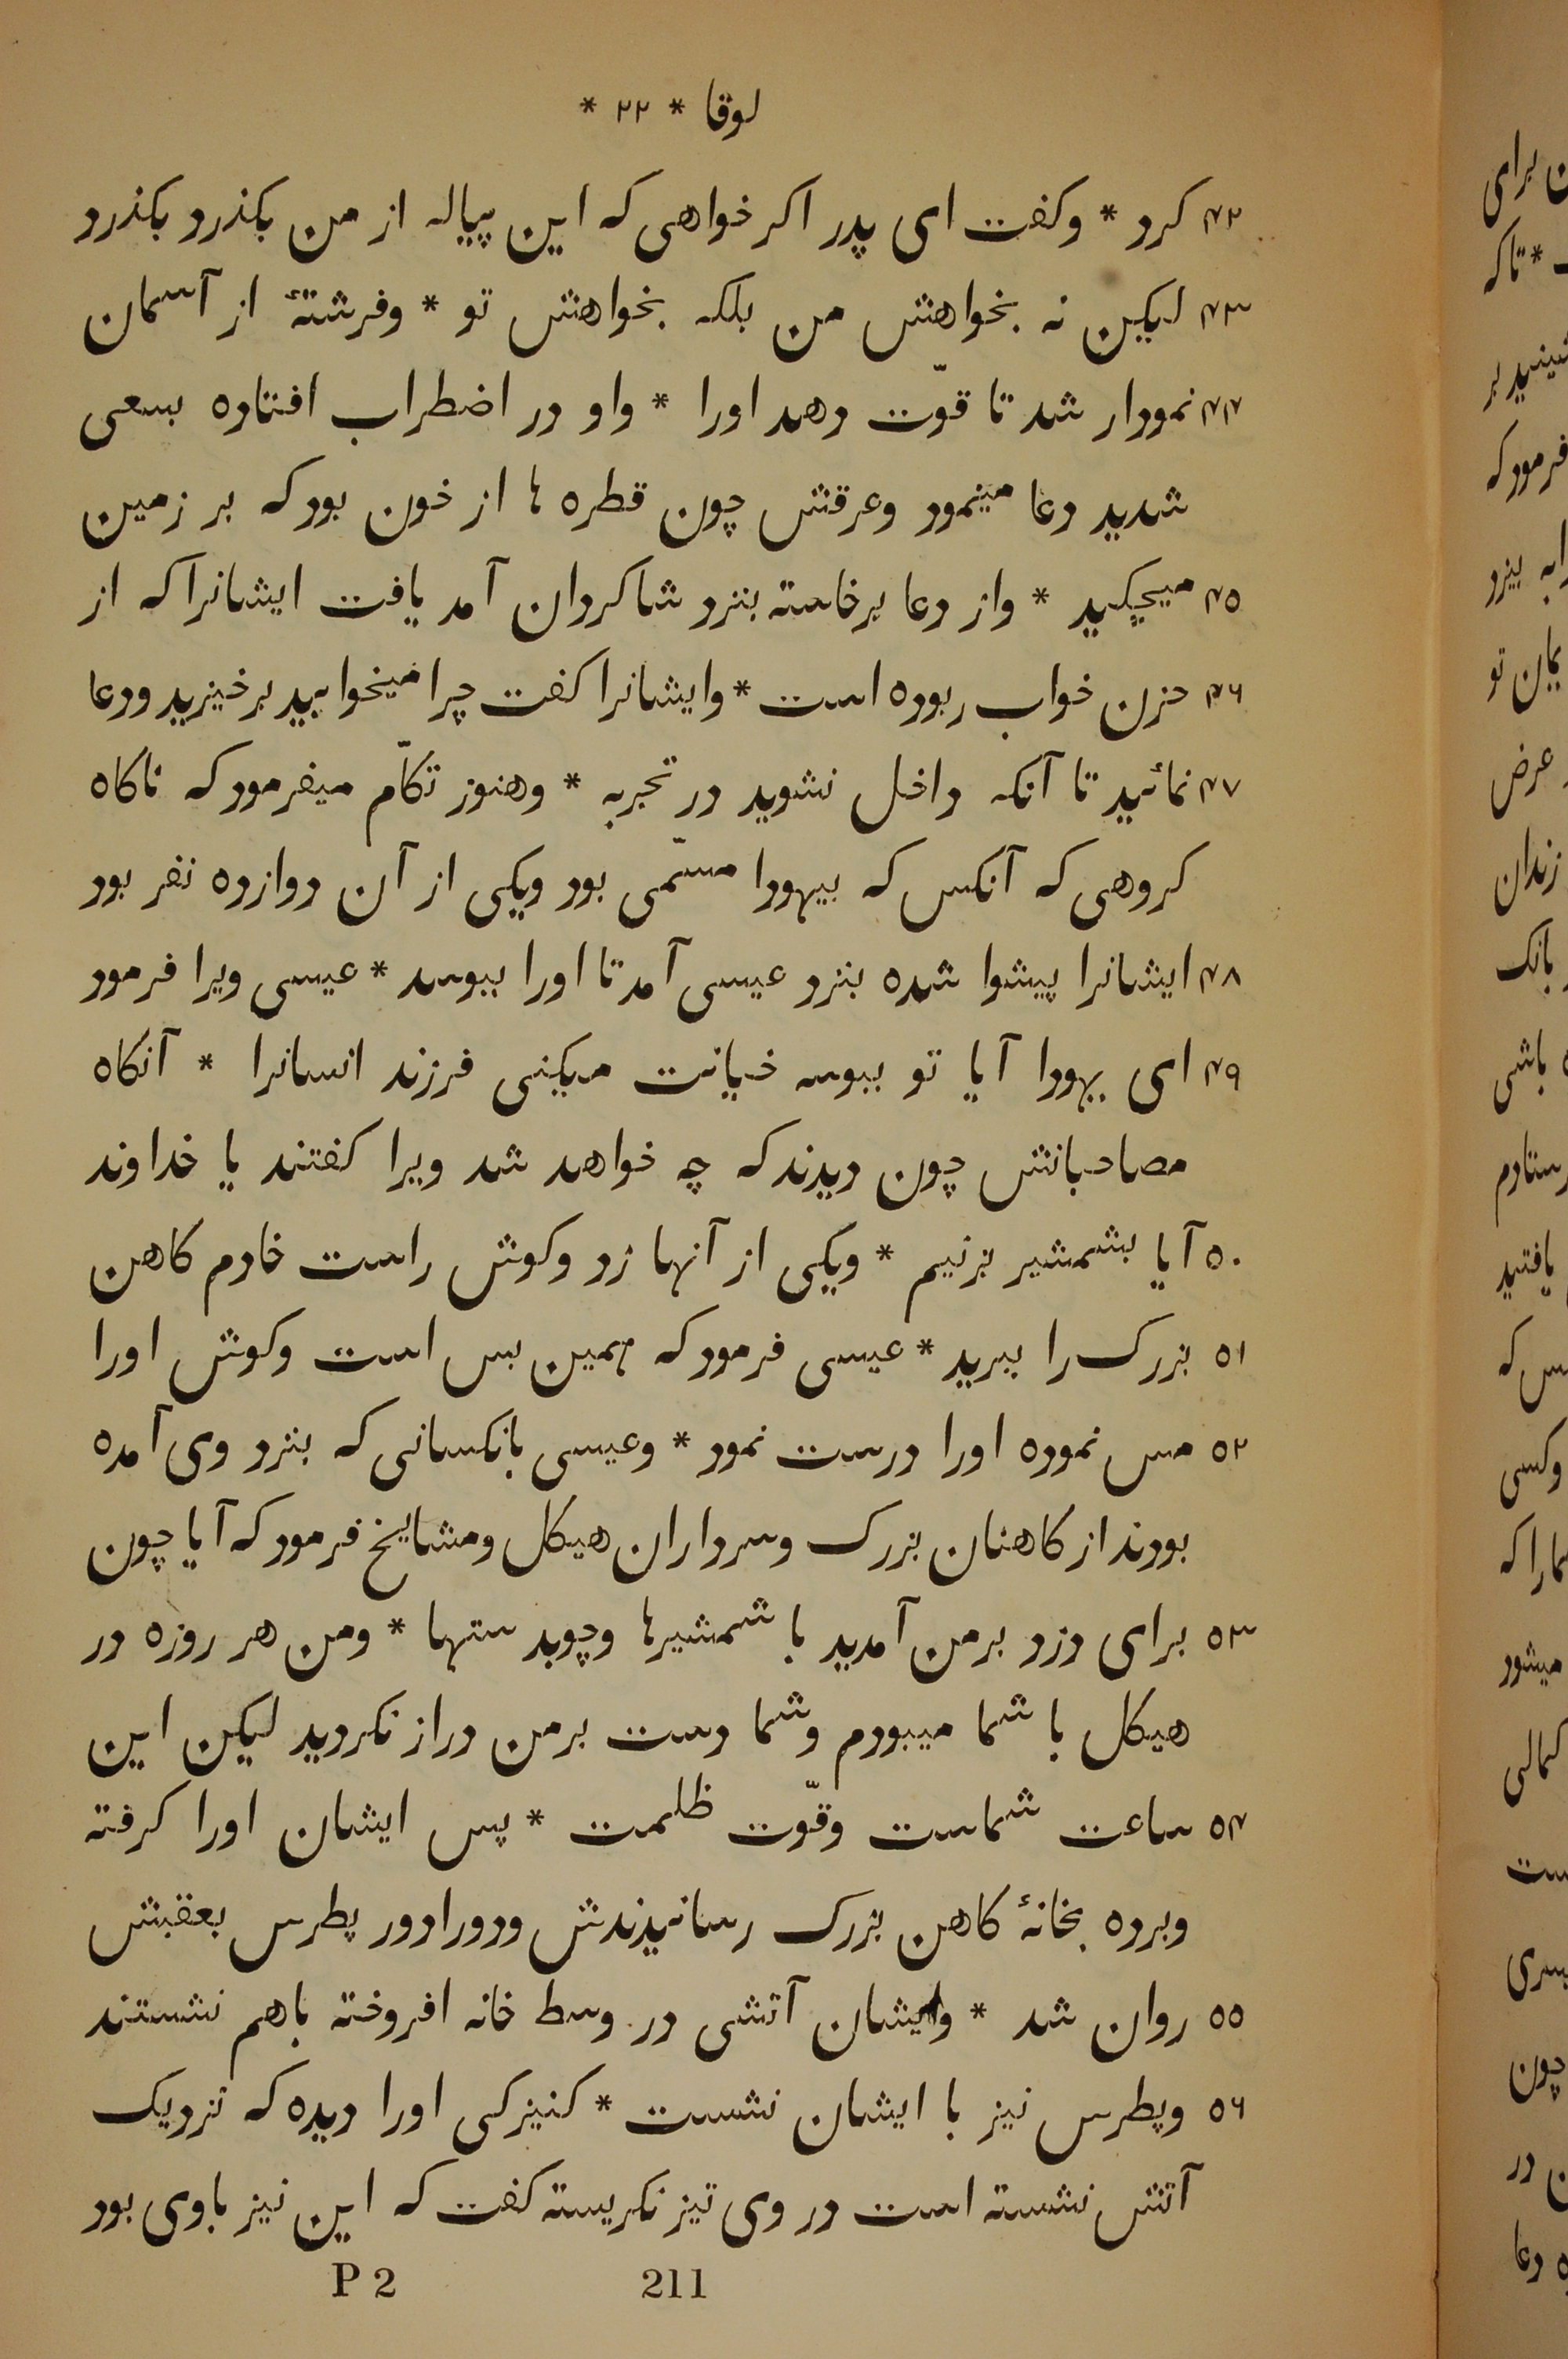 لوقا * ۲۲ *
۴۲ کرد * وکفت ای پدر اکر خواهی که این پیاله از من بکذرد بکذرد
۴۳ لیکین نه بخواهش من بلکه بخواهش تو * وفرشتهٔ از آسمان
۴۴ نمودار شد تا قوّت دهد اورا * واو در اضطراب افتاده بسعی
شدید دعا مینمود وعرقش چون قطره ها از خون بود که بر زمین
۴۵ میچکید * واز دعا برخاسته بنزد شاکردان آمد یافت ایشانرا که از
۴۶ حزن خواب ربوده است * وایشانرا کفت چرا میخوابید برخیزید ودعا
۴۷ نمائید تا آنکه داخل نشوید در تجربه * وهنوز تکلّم میفرمود که ناکاه
کروهی که آنکس که بیهودا مسمّی بود ویکی از آن دوازده نفر بود
۴۸ ایشانرا پیشوا شده بنزد عیسی آمد تا اورا ببوسد * عیسی ویرا فرمود
۴۹ ای یهودا آیا تو ببوسه خیانت میکنی فرزند انسانرا * آنکاه
مصاحبانش چون دیدند که چه خواهد شد ویرا کفتند یا خداوند
۵۰ آیا بشمشیر بزنیم * ویکی از آنها زد وکوش راست خادم کاهن
۵۱ بزرک را ببرید * عیسی فرمود که همین بس است وکوش اورا
۵۲ مس نموده اورا درست نمود * وعیسی بآنکسانی که بنزد وی آمده
بودند از کاهنان بزرک وسرداران هیکل ومشایخ فرمود که آیا چون
۵۳ برای دزد برمن آمدید با شمشیرها وچوبد ستها * ومن هر روزه در
هیکل با شما میبودم وشما دست برمن دراز نکردید لیکن این
۵۴ ساعت شماست وقوّت ظلمت * پس ایشان اورا کرفته
وبرده بخانهٔ کاهن بزرک رسانیدندش ودورادور پطرس بعقبش
۵۵ روان شد * وایشان آتشی در وسط خانه افروخته باهم نشستند
۵۶ وپطرس نیز با ایشان نشست * کنیزکی اورا دیده که نزدیک
آتش نشسته است در وی تیز نکریسته کفت که این نیز باوی بود
P 2 211